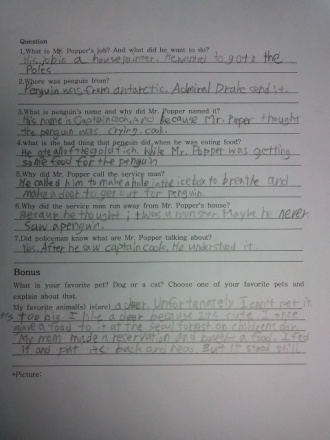 Question
1.What is Mr. Popper's job? And what did he want to do?
His job is a house painter. He wanted to go to the
Poles
2.Where was penguin from?
Penguin was from antarctic. Admiral Drake send it.
3.What is penguin's name and why did Mr. Popper named it?
His name is Captain Cook. And because Mr. Poper thought
the penguin was crying, cook.
4.what is the bad thing that penguin did when he was eating food?
He ate all of the gold fish. While Mr. Popper was getting
some food for the penguin
5.Why did Mr. Poper call the service man?
He called him to make a hole in the icebox to breathe and
make a door to get out for penguin.
6.Why did the service man run away from Mr. Popper's house?
Because he thought it was a monster. Maybe he never
saw a penguin.
7.Did policeman know what are Mr. Popper talking about?
Yes. After he saw captain cook. He understood it.
Bonus
What is your favorite pet? Dog or a cat? Choose one of your favorite pets and
explain about that.
My favorite animal(s) is(are) a deer. Unfortunately I can't pet it
It's too big. I like a deer because its cute. I once
gave a food to it at the seoul forest on childrens day.
My mom made a reservation and bought a food. I fed
it and pet its back and head. But it stood still
*Picture: